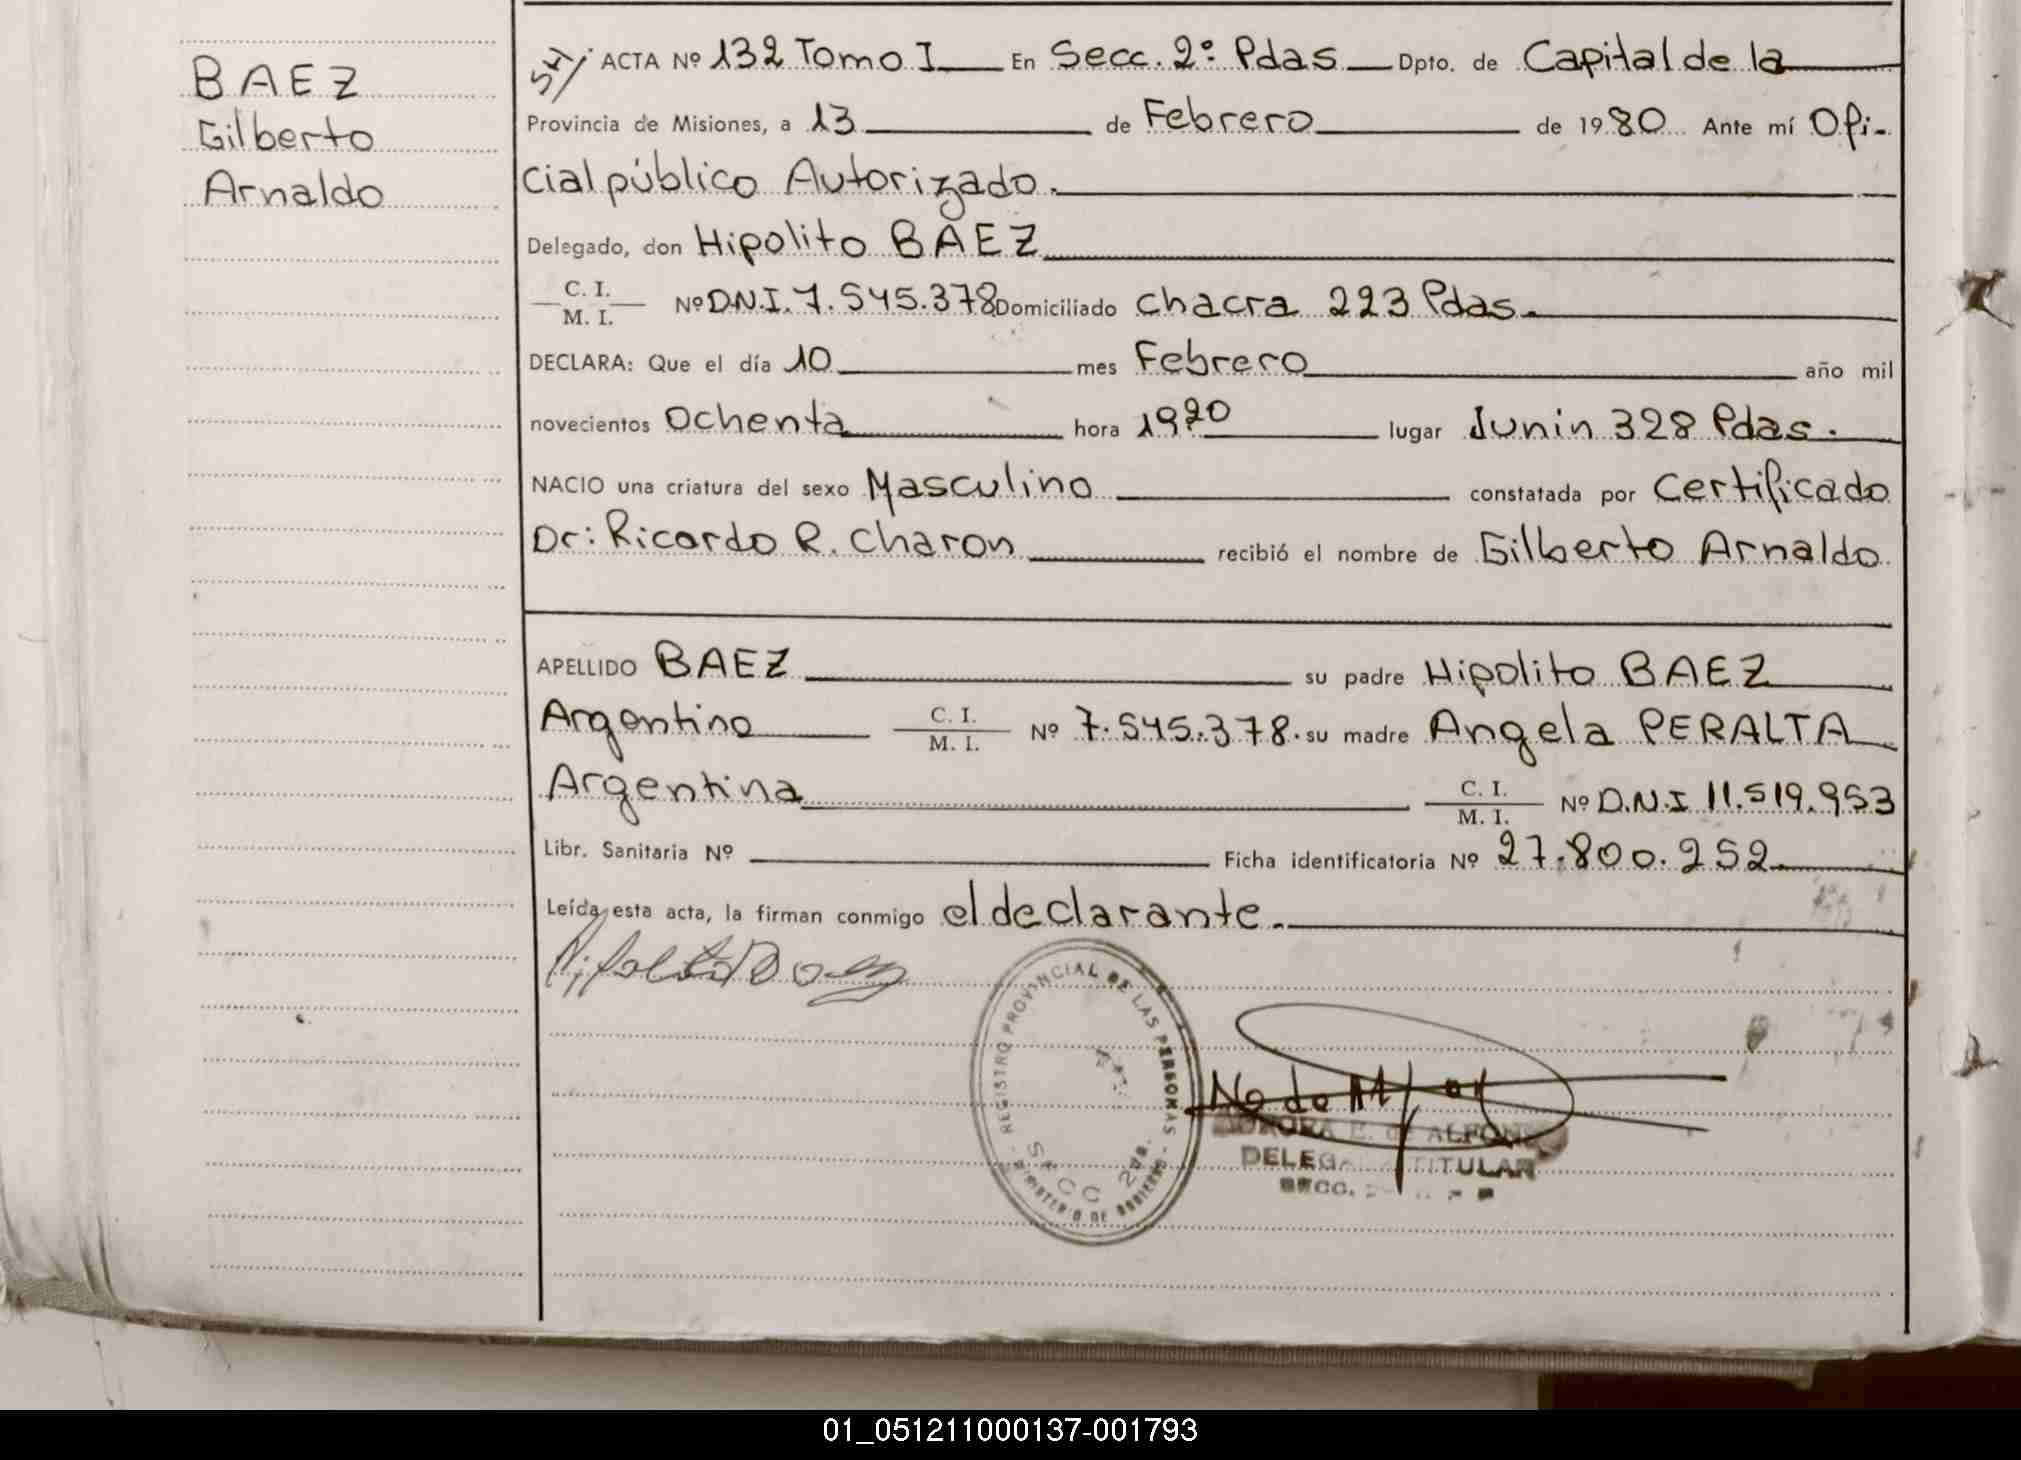 BAEZ
Gilberto
Arnaldo
ACTA Nº 132 Tomo I En Secc. 2º Pdas Dpto. de Capital de la
Provincia de Misiones, a 13 de Febrero de 1980 Ante mí Ofi-
cial público Autorizado.
Delegado, don Hipolito BAEZ
C. I.
M. I. Nº D.N.I. 7.545.378 Domiciliado chacra 223 Pdas.
DECLARA: Que el día 10 mes Febrero año mil
novecientos Ochenta hora 19 20 lugar Junin 328 Pdas.
NACIO una criatura del sexo Masculino constatada por Certificado
Dr: Ricardo R. Charon recibió el nombre de Gilberto Arnaldo
APELLIDO BAEZ su padre Hipolito BAEZ
Argentino C. I. M. I. Nº 7.545.378. su madre Angela PERALTA
Argentina C. I. M. I. Nº D.N.I 11.519.953
Libr. Sanitaria Nº Ficha identificatoria Nº 27.800.252
Leída esta acta, la firman conmigo el declarante.
REGISTRO PROVINCIAL DE LAS PERSONAS
SECC 2
MINISTERIO DE GOBIERNO
TITULAR
SECC.
01_051211000137-001793